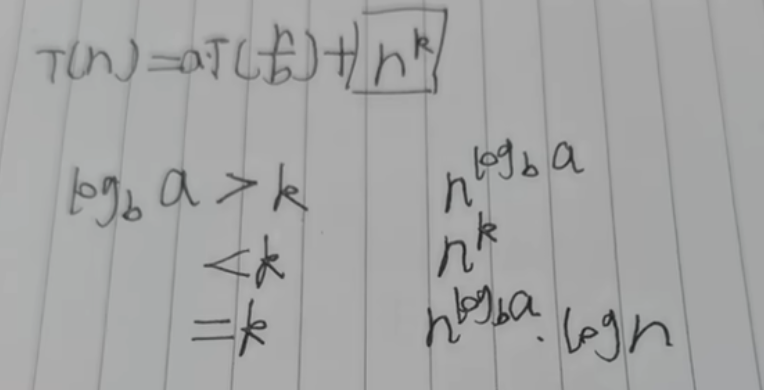 T(n)=a·T(n/b)+n^k
log_b a > k n^{log_b a}
<k n^k
=k n^{log_b a}·log n